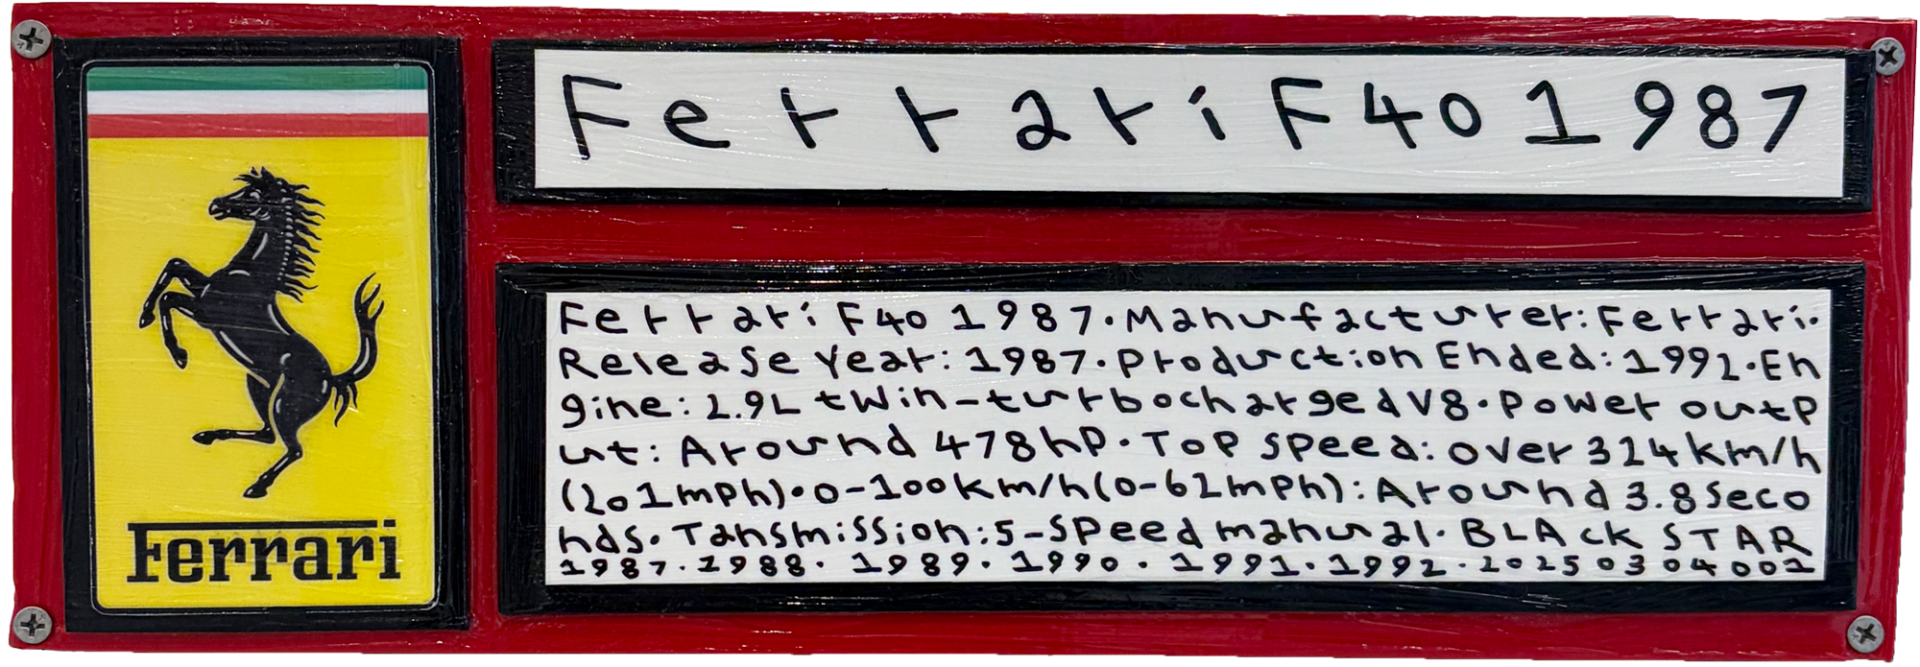 Ferrari F40 1987
Ferrari F40 1987·Manufacturer:Ferrari·
Release Year:1987·Production Ended:1992·En
gine:2.9L twin-turbocharged V8·Power outp
ut:Around 478hp·Top speed:over 324km/h
(201mph)·0-100km/h(0-62mph):Around 3.8seco
nds·Tansmission:5-speed manual·BLACK STAR
1987·1988·1989·1990·1991·1992·20250304001
Ferrari